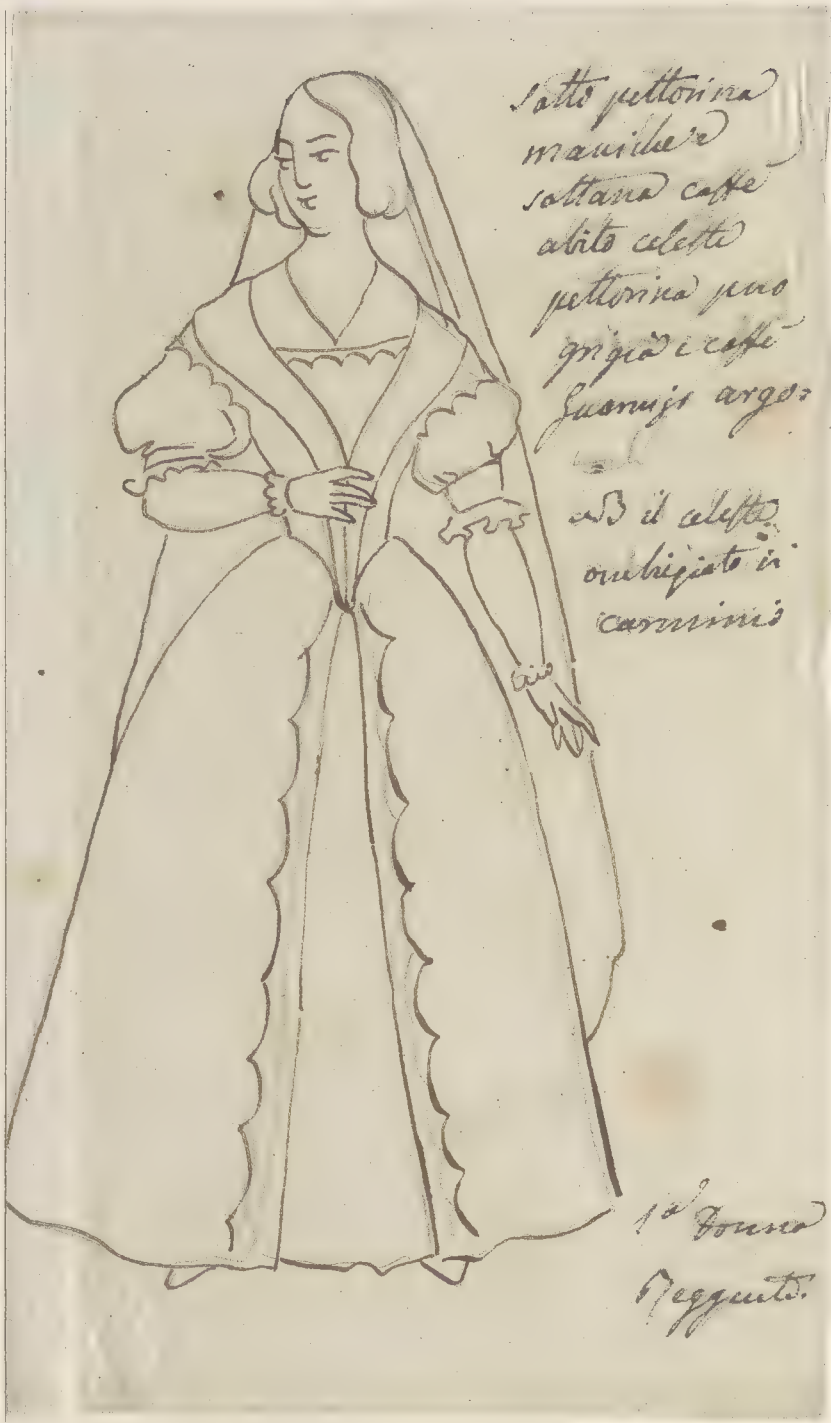 sotto pettorina
maniche e
sottana caffè
abito celeste
pettorina pure
grigia e caffè
argo=
il celeste
ombregiato in
carminio
1a Donna
Reggente.